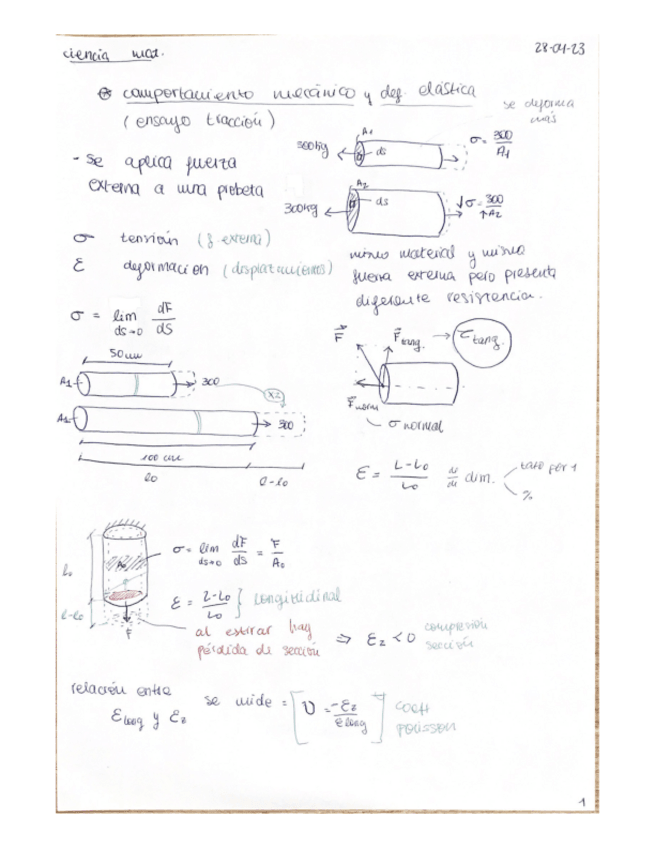 ciencia mat. 28-04-23
comportamiento mecánico y def. elástica
(ensayo tracción)
se deforma
más
- se aplica fuerza
externa a una probeta
300kg A1 ds σ = 300/A1
300kg A2 ds ↓σ = 300/↑A2
σ tensión (f. externa)
ε deformación (desplazamientos)
mismo material y misma
fuerza externa pero presenta
diferente resistencia.
σ = lim ds→0 dF/dS
50 mm
A1 300
x2
A1 300
100 mm
l0 l-l0
F⃗ F⃗tang. → τtang.
F⃗norm
σ normal
ε = L-L0/L0 dim. tanto por 1
%
l0
l-l0
A0
F
σ = lim ds→0 dF/ds = F/A0
ε = L-L0/L0 } longitudinal
al estirar hay
pérdida de sección ⇒ εz < 0 compresión
sección
relación entre
εlong y εz
se mide = [υ = -εz/εlong] coef
poisson
1